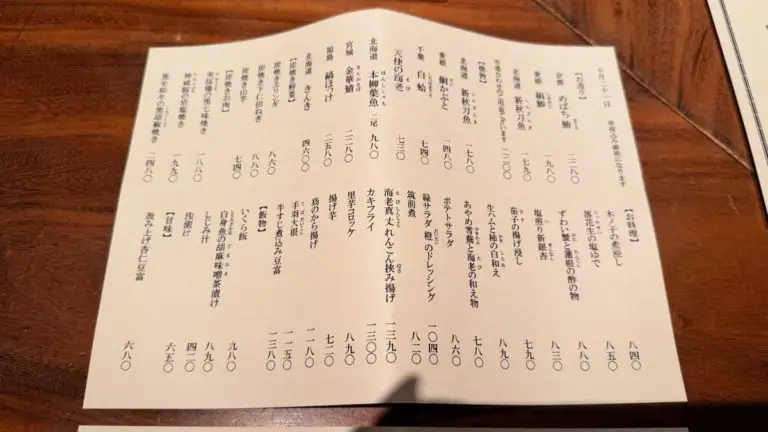 十月二十一日
※税込み価格になります
【お造り】
京都 めばち鮪 一二八〇
愛媛 縞鯵 一九八〇
北海道 新秋刀魚 一七九〇
二二〇〇
【焼物】
北海道 新秋刀魚 一七八〇
愛媛 鯛かぶと 一四八〇
千葉 白蛤 七四〇
天使の海老 七三〇
北海道 本柳葉魚 二尾 九八〇
宮城 金華鯖 二二八〇
福島 縞ほっけ 二五八〇
北海道 きんき 四六〇〇
【炭焼き野菜】
炭焼きエリンギ 八六〇
炭焼き下仁田ねぎ 八八〇
炭焼き山芋 七四〇
【炭焼きお肉】
一八八〇
一九九〇
黒毛和牛の黒胡椒焼き 二四八〇
【お料理】
木ノ子の煮浸し 八四〇
落花生の塩ゆで 八五〇
ずわい蟹と蓮根の酢の物 八八〇
塩煎り新銀杏 八三〇
茄子の揚げ浸し 七九〇
生ハムと柿の白和え 八九〇
あやめ雪蕪と海老の和え物 七八〇
ポテトサラダ 八六〇
緑サラダ 橙のドレッシング 一〇四〇
筑前煮 八二〇
海老真丈れんこん挟み揚げ 一三九〇
カキフライ 一三〇〇
里芋コロッケ 八九〇
揚げ芋 七二〇
鳥のから揚げ 一一八〇
手羽大根 一一五〇
牛すじ煮込み豆富 一三八〇
【飯物】
いくら飯 九八〇
白身魚の胡麻味噌茶漬け 八九〇
しじみ汁 四二〇
浅漬け 六五〇
【甘味】
汲み上げ杏仁豆富 六八〇